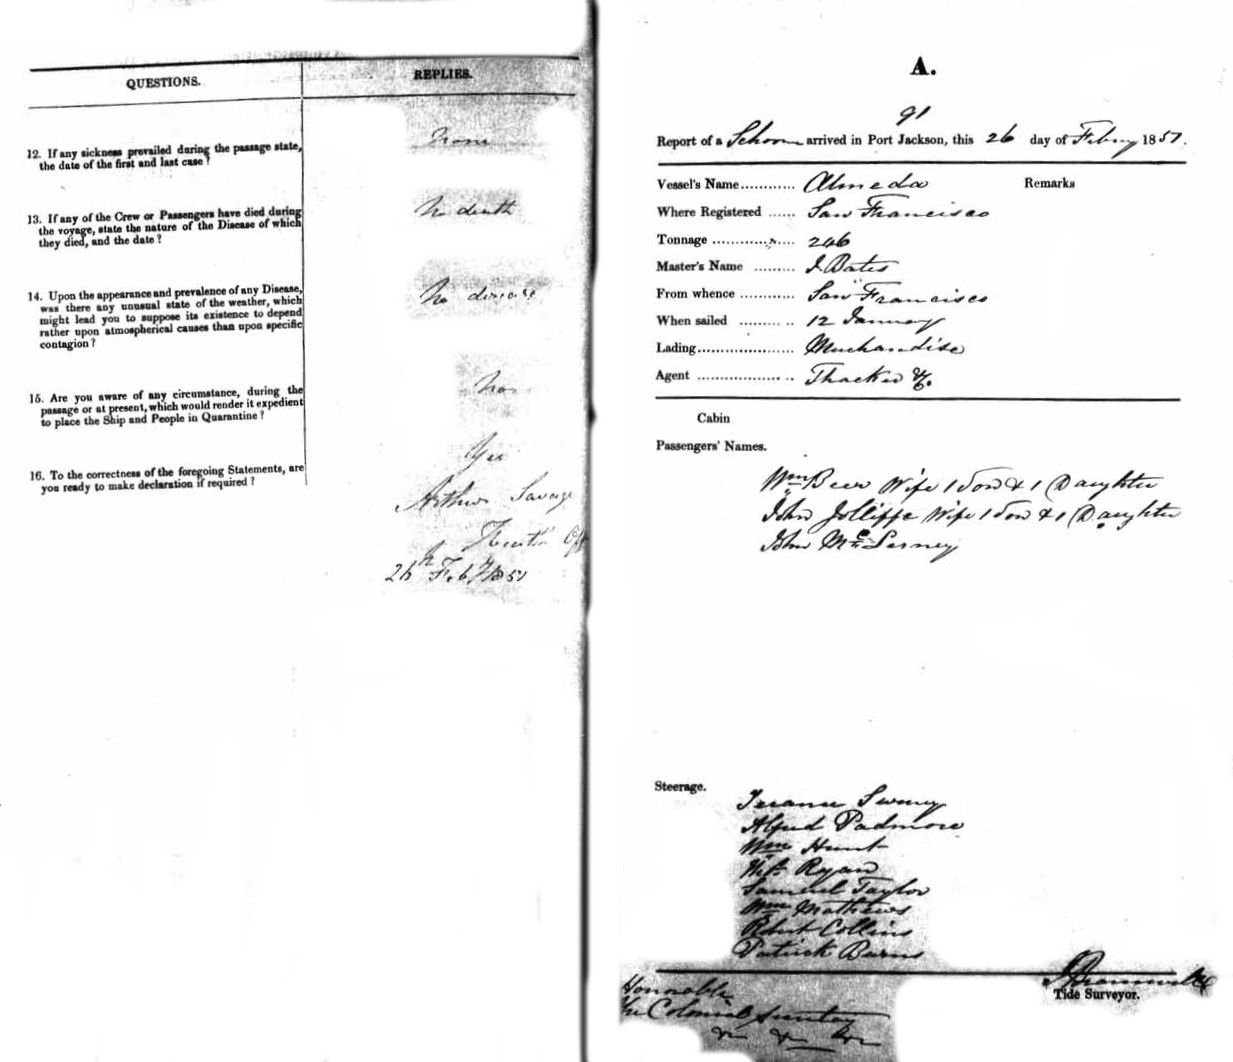 QUESTIONS.
REPLIES.
12. If any sickness prevailed during the passage state,
the date of the first and last case?
None
13. If any of the Crew or Passengers have died during
the voyage, state the nature of the Disease of which
they died, and the date?
No death
14. Upon the appearance and prevalence of any Disease,
was there any unusual state of the weather, which
might lead you to suppose its existence to depend
rather upon atmospherical causes than upon specific
contagion?
No disease
15. Are you aware of any circumstance, during the
passage or at present, which would render it expedient
to place the Ship and People in Quarantine?
No
16. To the correctness of the foregoing Statements, are
you ready to make declaration if required?
Yes
Arthur Savage
Health Off
26 Feby 1851
A.
91
Report of a Schooner arrived in Port Jackson, this 26 day of Febuy 1851.
Vessel's Name............ Almeda
Remarks
Where Registered ...... San Francisco
Tonnage .................. 246
Master's Name ......... J Bates
From whence ............ San Francisco
When sailed ............ 12 January
Lading...................... Merchandise
Agent ...................... Thacker & Co.
Cabin
Passengers' Names.
Wm Beer Wife 1 Son & 1 Daughter
John Jolliffe Wife 1 Son & 1 Daughter
John
Steerage.
Terance Sweney
Alfred Padmore
Wm Hunt
Ryan
Samuel Taylor
Wm Mathews
Robert Collins
Patrick Burns
Tide Surveyor.
Honorable
The Colonial Secretary
&c &c &c